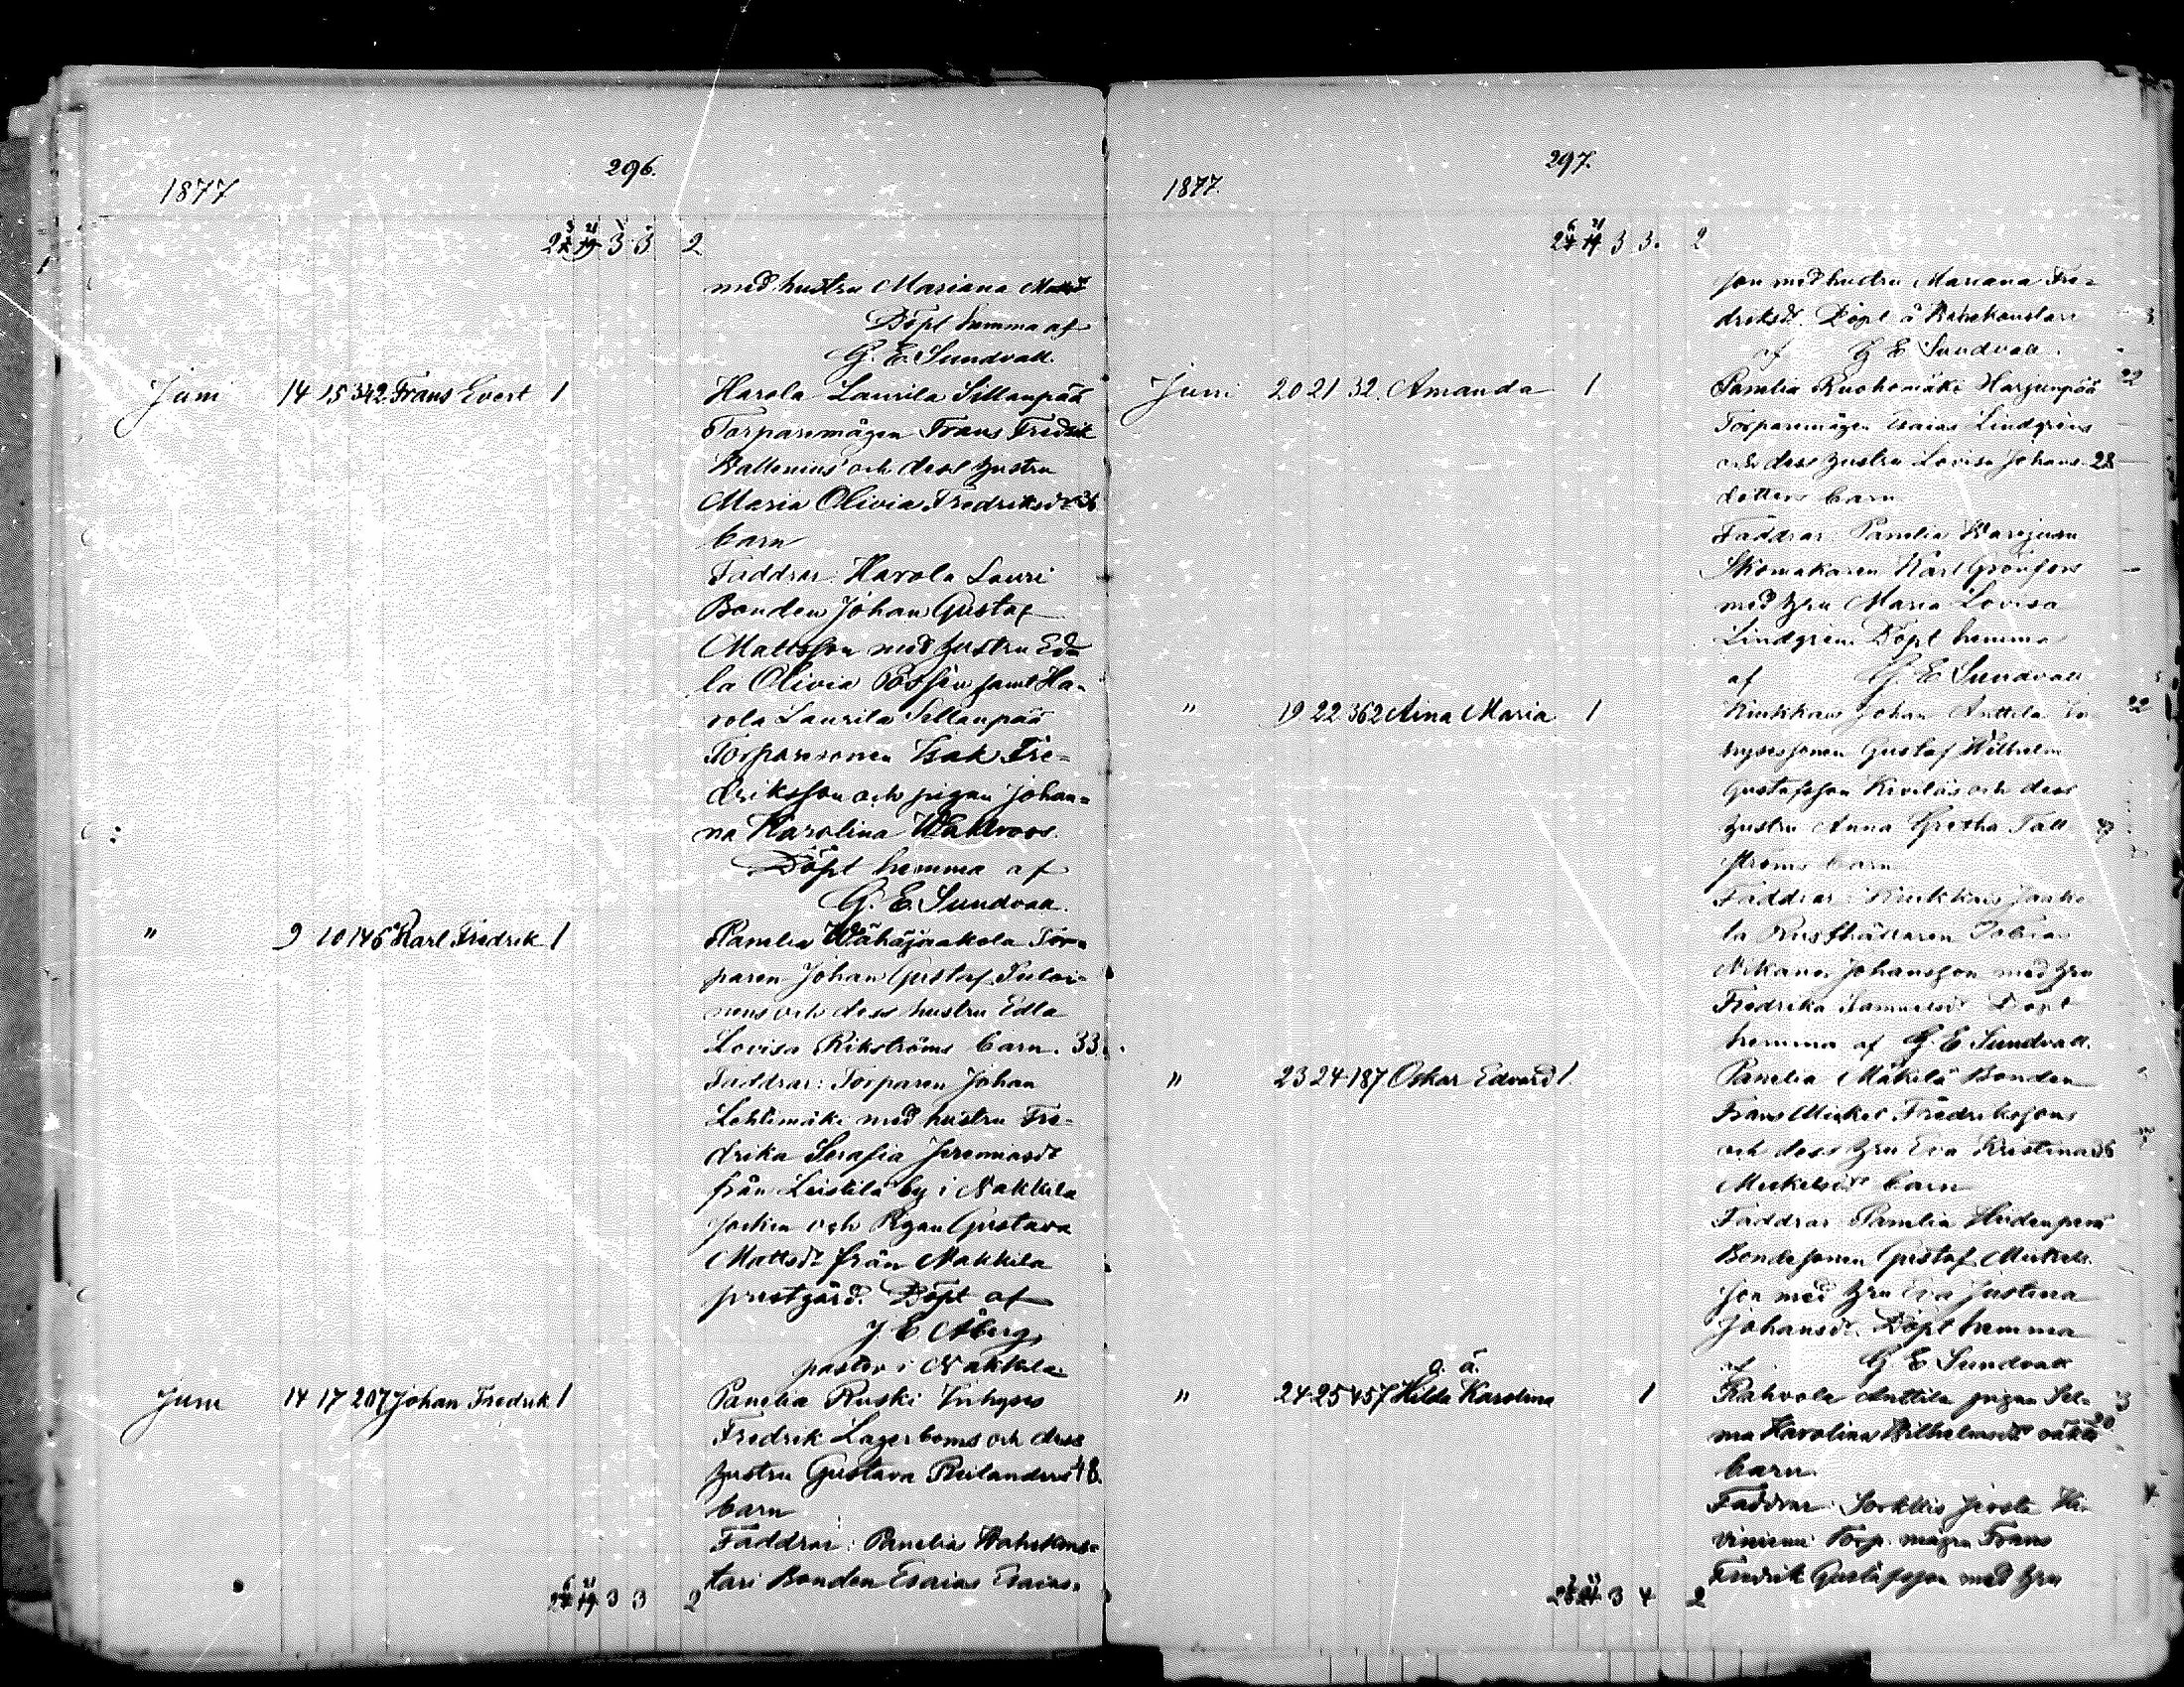 296.
1877
3 3 2
med hustru Mariana Mattsd
Döpt hemma af
G. E. Sundvall.
Juni 14 15 342 Frans Evert 1 Harola Laurila Sillanpää
Torparemågen Frans Fredrik
Wallenius och dess hustru
Maria Olivia Fredriksdr 36
barn
Faddrar: Harola Lauri
Bonden Johan Gustaf
Mattsson med hustru Ed
la Olivia samt Ha-
rola Laurila Sillanpää
Torparesonen Isak Fre-
driksson och pigan Johan-
na Karolina Wallroos.
Döpt hemma af
G. E. Sundvall.
" 9 10 146 Karl Fredrik 1 Panelia Wähäjaakola Tor-
paren Johan Gustaf
nens och dess hustru Edla
Lovisa Rikströms barn. 33.
Faddrar: Torparen Johan
Lehtimäki med hustru Fre-
drika Serafia Jeremiasdr
från Leistilä by i Nakkila
socken och Pigan Gustava
Mattsdr från Nakkila
prestgård. Döpt af
J E Åberg,
pastor i Nakkila
Juni 14 17 207 Johan Fredrik 1 Panelia Ruski Inhyses
Fredrik Lagerboms och dess
hustru Gustava Reilanders 48.
barn
Faddrar: Panelia
tari Bonden Esaias Esaias-
3 3 2
297.
1877.
3 3. 2
son med hustru Mariana Fre-
driksdr. Döpt å
af G E Sundvall.
Juni 20 21 32. Amanda 1 Panelia Ruohomäki Harjunpää
Torparemågen Esaias Lindgrens
och dess hustru Lovisa Johans- 28
dotters barn
Faddrar: Panelia
Skomakaren Karl Grönfors
med hru Maria Lovisa
Lindgren. Döpt hemma
af G. E Sundvall
" 19 22 362 Aina Maria 1 Kiukkais Johan Anttila In
hysessonen Gustaf Wilhelm
Gustafsson och dess
hustru Anna Gretha Täll
ströms barn
Faddrar: Kiukkais
la Rusthållaren Tobias
Nikanor Johansson med hru
Fredrika Samuelsdr Döpt
hemma af G. E Sundvall.
" 23 24 187 Oskar Edvard 1. Panelia Mäkilä Bonden
Frans Mickel Fredrikssons
och dess hru Eva Kristina 36
Mickelsdr barn
Faddrar: Panelia
Bondesonen Gustaf Mickels-
son med hru Eva Justina
Johansdr. Döpt hemma
af G E Sundvall
o. ä.
" 24 25 457 Hilda Karolina 1 Rahvola Anttila pigan Sel-
ma Karolina Wilhelmsdr oäkta 20
barn.
Faddrar: Sorkkis
torp. mågen Frans
Fredrik Gustafsson med hru
3 4 2